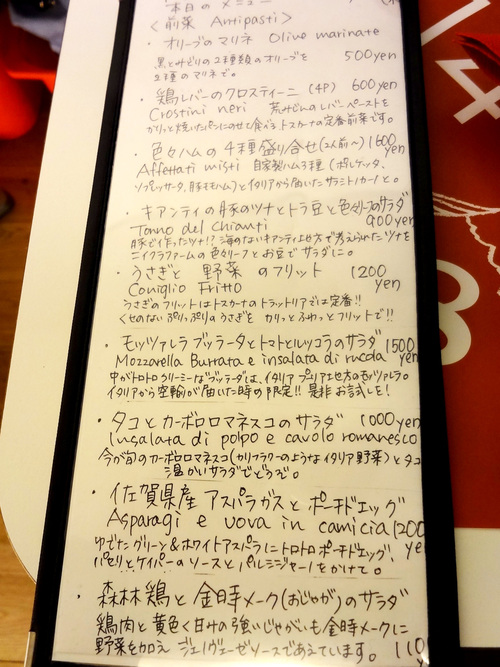 本日のメニュー
<前菜 Antipasti>
・オリーブのマリネ Olive marinate
黒とみどりの2種類のオリーブを 500yen
2種のマリネで。
・鶏レバーのクロスティーニ (4P) 600yen
Crostini neri 荒みじんのレバーペーストを
カリッと焼いたパンにのせて食べるトスカーナの定番前菜です。
・色々ハムの4種盛り合せ(2人前〜) 1600yen
Affettati misti 自家製ハム3種(ポルケッタ、
ソプレッサータ、豚ももハム)とイタリアから届いたサラミトノカーノと。
・キアンティの豚のツナとトラ豆と色々リーフのサラダ
Tonno del Chianti 900yen
豚で作ったツナ!? 海のないキアンティ地方で考えられたツナを
ニイクラファームの色々リーフとお豆でサラダに。
・うさぎと 野菜 のフリット 1200
Coniglio Fritto yen
うさぎのフリットはトスカーナのトラットリアでは定番!!
くせのないぷりっぷりのうさぎと カリッとふわっとフリットで!!
・モッツァレラブッラータとトマトとルッコラのサラダ 1500
Mozzarella Burrata e insalata di rucola yen
中がトロトロクリーミーなブッラータは、イタリア プーリア地方のモッツァレラ。
イタリアから空輸が届いた時の限定!! 是非お試しを!
・タコとカーボロロマネスコのサラダ 1000yen
Insalata di polpo e cavolo romanesco
今が旬のカーボロロマネスコ(カリフラワーのようなイタリア野菜)とタコ
温かいサラダでどうぞ。
・佐賀県産 アスパラガスと ポーチドエッグ
Asparagi e uova in camicia 1200
ゆでたグリーン&ホワイトアスパラにトロトロポーチドエッグ、 ye
パセリとケイパーのソースとパルミジャーノをかけて。
・森林鶏と金時メーク(おじゃが)のサラダ
鶏肉と黄色く甘みの強いじゃがいも金時メークに
野菜を加え ジェノヴェーゼソースであえています。 110
14
8